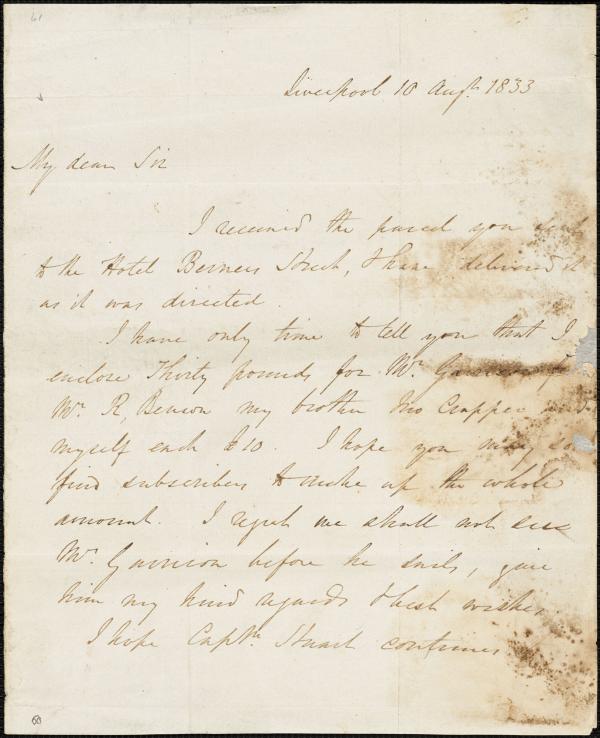 61
Liverpool 10 Augt. 1833
My dear Sir
I received the parcel you sent
to the Hotel Berners Street, & have delivered it
as it was directed.
I have only time to tell you that I
enclose Thirty pounds for Mr. Garrison of
Mr. R, Benson my brother Jno Cropper and
myself each £10. I hope you may so
find subscribers to make up the whole
amount. I regret we shall not see
Mr. Garrison before he sails, give
him my kind regards & best wishes
I hope Captn. Stuart continues
60